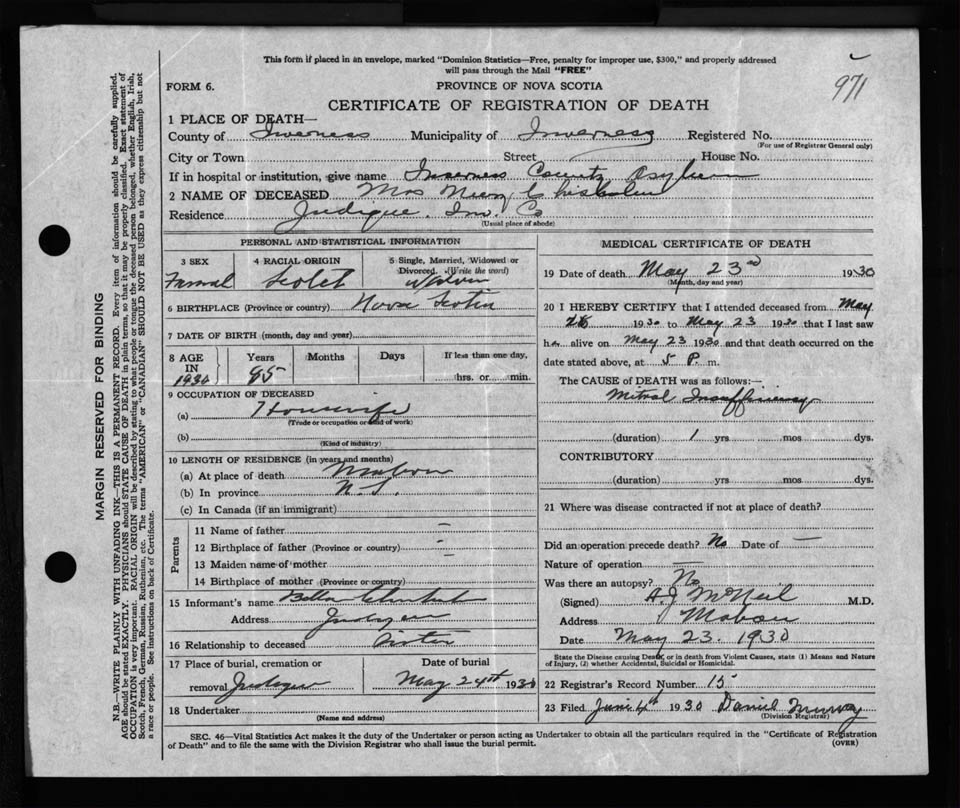 This form if placed in an envelope, marked "Dominion Statistics—Free, penalty for improper use, $300," and properly addressed
will pass through the Mail "FREE"
971
FORM 6.
PROVINCE OF NOVA SCOTIA
CERTIFICATE OF REGISTRATION OF DEATH
1 PLACE OF DEATH—
County of Inverness Municipality of Inverness Registered No.
(For use of Registrar General only)
City or Town Street House No.
If in hospital or institution, give name Inverness County Asylum
2 NAME OF DECEASED Mrs Chisholm
Residence Judique. Inv. Co
(Usual place of abode)
PERSONAL AND STATISTICAL INFORMATION
3 SEX 4 RACIAL ORIGIN 5 Single, Married, Widowed or
Divorced. (Write the word)
Famal Scotch
6 BIRTHPLACE (Province or country) Nova Scotia
7 DATE OF BIRTH (month, day and year)
8 AGE Years Months Days If less than one day,
IN
1930 95 hrs. or min.
9 OCCUPATION OF DECEASED
(a) Housewife
(Trade or occupation or kind of work)
(b)
(Kind of industry)
10 LENGTH OF RESIDENCE (in years and months)
(a) At place of death Mabou
(b) In province N.S.
(c) In Canada (if an immigrant)
Parents
11 Name of father —
12 Birthplace of father (Province or country) —
13 Maiden name of mother —
14 Birthplace of mother (Province or country)
15 Informant's name Bella
Address Judique
16 Relationship to deceased Sister
17 Place of burial, cremation or Date of burial
removal Judique May 24th 1930
18 Undertaker
(Name and address)
MEDICAL CERTIFICATE OF DEATH
19 Date of death May 23rd 1930
(Month, day and year)
20 I HEREBY CERTIFY that I attended deceased from May
1930 to May 23 1930 that I last saw
her alive on May 23 1930 and that death occurred on the
date stated above, at 5 P. m.
The CAUSE of DEATH was as follows:—
Mitral Insufficiency
(duration) 1 yrs mos dys.
CONTRIBUTORY
(duration) yrs mos dys.
21 Where was disease contracted if not at place of death?
Did an operation precede death? No Date of —
Nature of operation —
Was there an autopsy? No
(Signed) A J McNeil M.D.
Address Mabou
Date May 23. 1930
State the Disease causing Death, or in death from Violent Causes, state (1) Means and Nature
of Injury, (2) whether Accidental, Suicidal or Homicidal.
22 Registrar's Record Number 15
23 Filed June 4th 1930 Daniel Murray
(Division Registrar)
SEC. 46—Vital Statistics Act makes it the duty of the Undertaker or person acting as Undertaker to obtain all the particulars required in the "Certificate of Registration
of Death" and to file the same with the Division Registrar who shall issue the burial permit. (OVER)
MARGIN RESERVED FOR BINDING
N.B.—WRITE PLAINLY WITH UNFADING INK—THIS IS A PERMANENT RECORD. Every item of information should be carefully supplied.
AGE should be stated EXACTLY. PHYSICIANS should STATE CAUSE OF DEATH in plain terms, so that it may be properly classified. Exact statement of
OCCUPATION is very important. RACIAL ORIGIN will be described by stating to what people or tongue the deceased person belonged, whether English, Irish,
Scotch, French, German, Russian, Ruthenian, etc. The terms "AMERICAN" or "CANADIAN" SHOULD NOT BE USED as they express citizenship but not
a race or people. See instructions on back of Certificate.